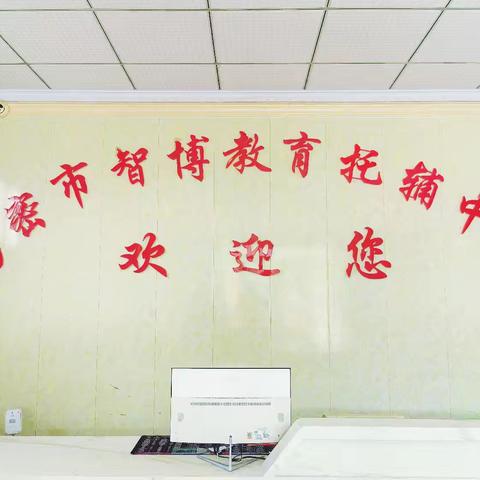 市智博教育托辅中
欢迎您